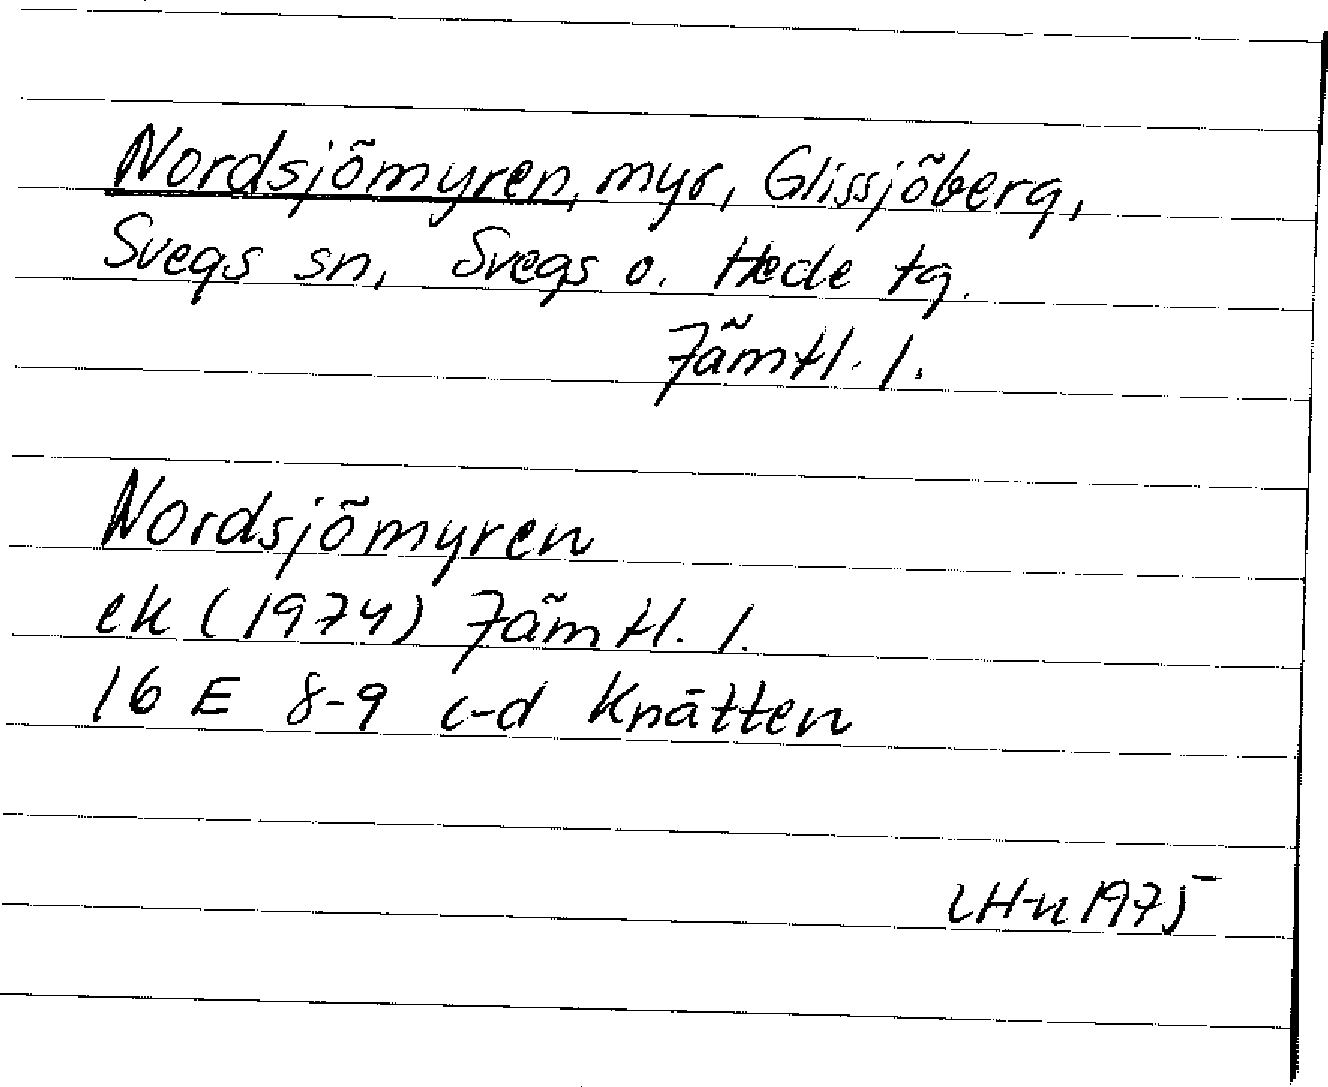 Nordsjömyren, myr, Glissjöberg,
Svegs sn, Svegs o. Hede tg.
Jämtl. l.
Nordsjömyren
ek (1974) Jämtl. l.
16 E 8-9 c-d Knätten
LH-n 1975